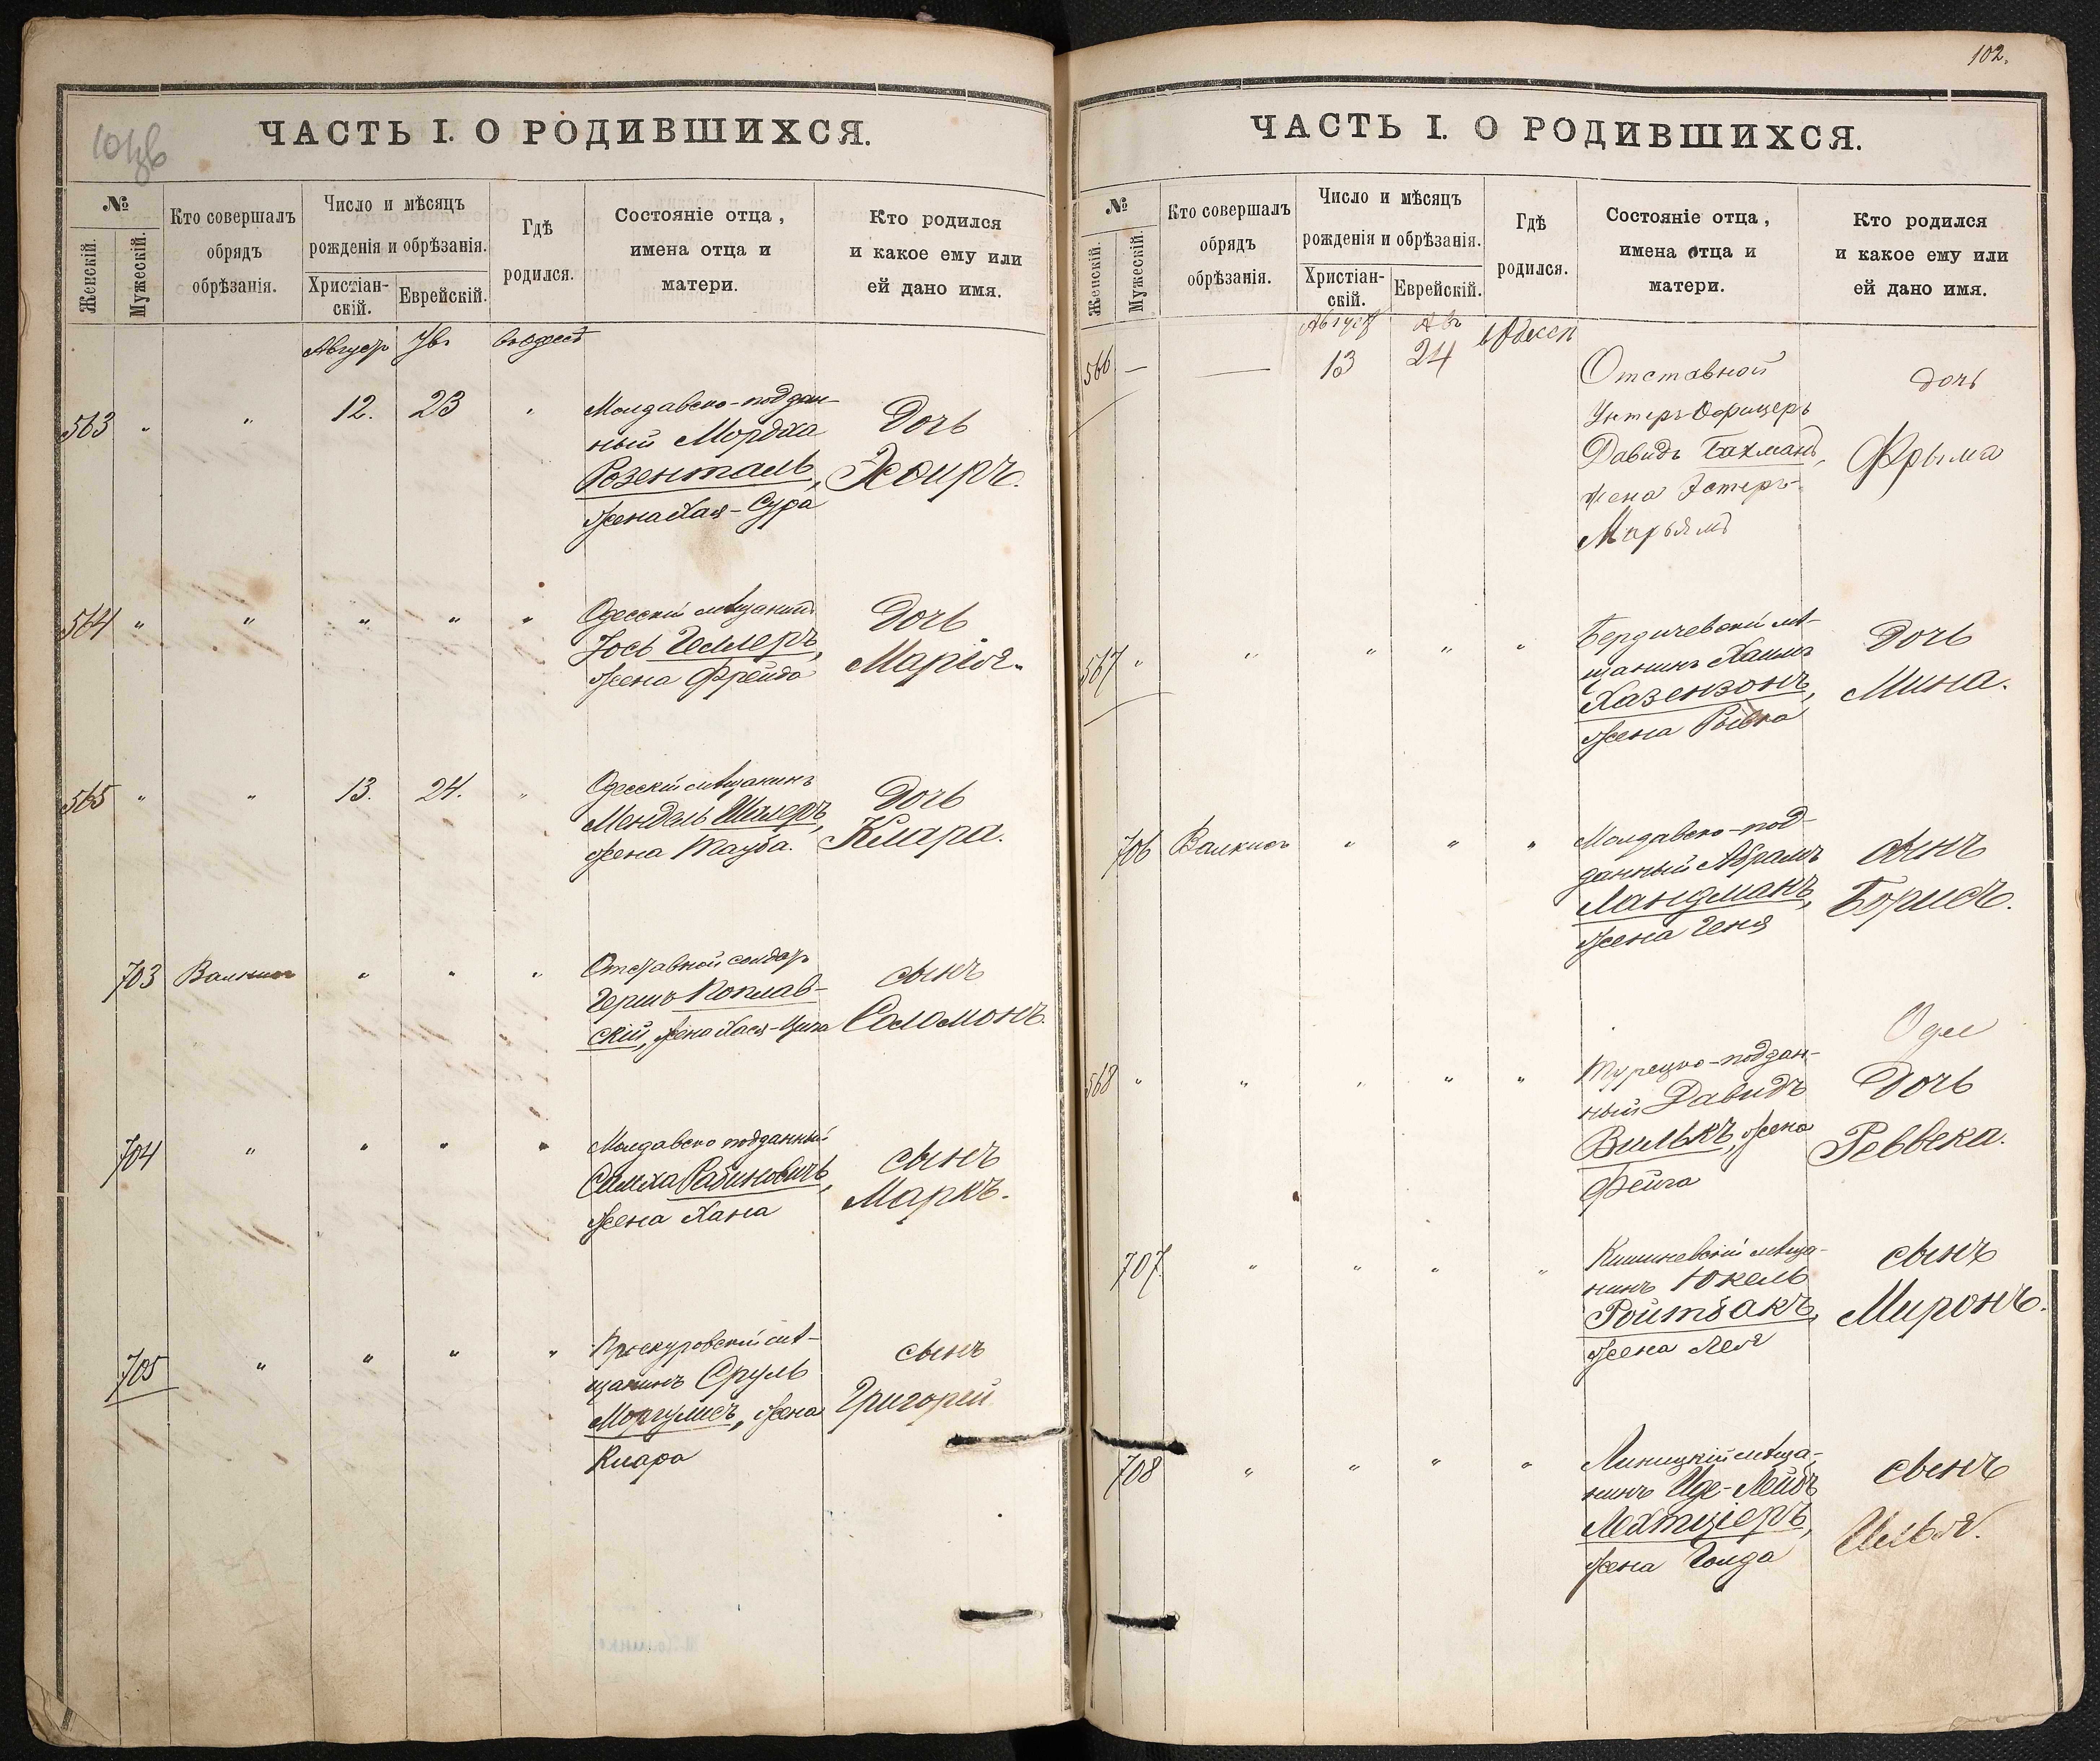 ЧАСТЬ I. О РОДИВШИХСЯ.
№
Женскій.
Мужескій.
Кто совершалъ
обрядъ
обрѣзанія.
Число и мѣсяцъ
рожденія и обрѣзанія.
Христіан-
скій.
Еврейскій.
Гдѣ
родился.
Состояніе отца,
имена отца и
матери.
Кто родился
и какое ему или
ей дано имя.
Августъ
563 " " 12. 23 "
Молдавско-поддан-
ный Мордха
Розенталь,
жена Хая-Сура
Дочь
Эсѳирь.
564 " " " " "
Одесскій мѣщанинъ
Іось Геллеръ,
жена Фрейда
Дочь
Марія.
565 " " 13. 24. "
Одесскій мѣщанинъ
Мендель Шилеръ,
жена Тауба.
Дочь
Клара.
703 " " "
Отставной солдатъ
Гершъ Поплав-
скій, жена Хася-
сынъ
Соломонъ.
704 " " " "
Молдавско подданный
Симха Рабиновичъ,
жена Хана
сынъ
Маркъ.
705 " " " "
Проскуровскій мѣ-
щанинъ Сруль
Моргулисъ, жена
Клара
сынъ
Григорій
102.
ЧАСТЬ I. О РОДИВШИХСЯ.
№
Женскій.
Мужескій.
Кто совершалъ
обрядъ
обрѣзанія.
Число и мѣсяцъ
рожденія и обрѣзанія.
Христіан-
скій.
Еврейскій.
Гдѣ
родился.
Состояніе отца,
имена отца и
матери.
Кто родился
и какое ему или
ей дано имя.
Август Авъ
566 — — 13 24
Отставной
Унтеръ-Офицеръ
Давидъ Бахманъ,
жена Эстеръ-
Марьямъ
дочь
Фрыма
567 " " " " "
Бердичевскій мѣ-
щанинъ Хаимъ
Хазензонъ,
жена Рывка
Дочь
Мина.
706 " " "
Молдавско-под-
данный Абрамъ
Ландманъ,
жена Геня
сынъ
Борисъ.
568 " " " " "
Турецко-поддан-
ный Давидъ
Вилькъ, жена
Фейга
Дочь
Реввека.
707 " " " "
Кишиневскій мѣща-
нинъ Юкель
Ройтбакъ,
жена Лея
сынъ
Миронъ.
708 " " " "
Линицкій мѣща-
нинъ Иде-Лейбъ
жена Голда
сынъ
Илья.